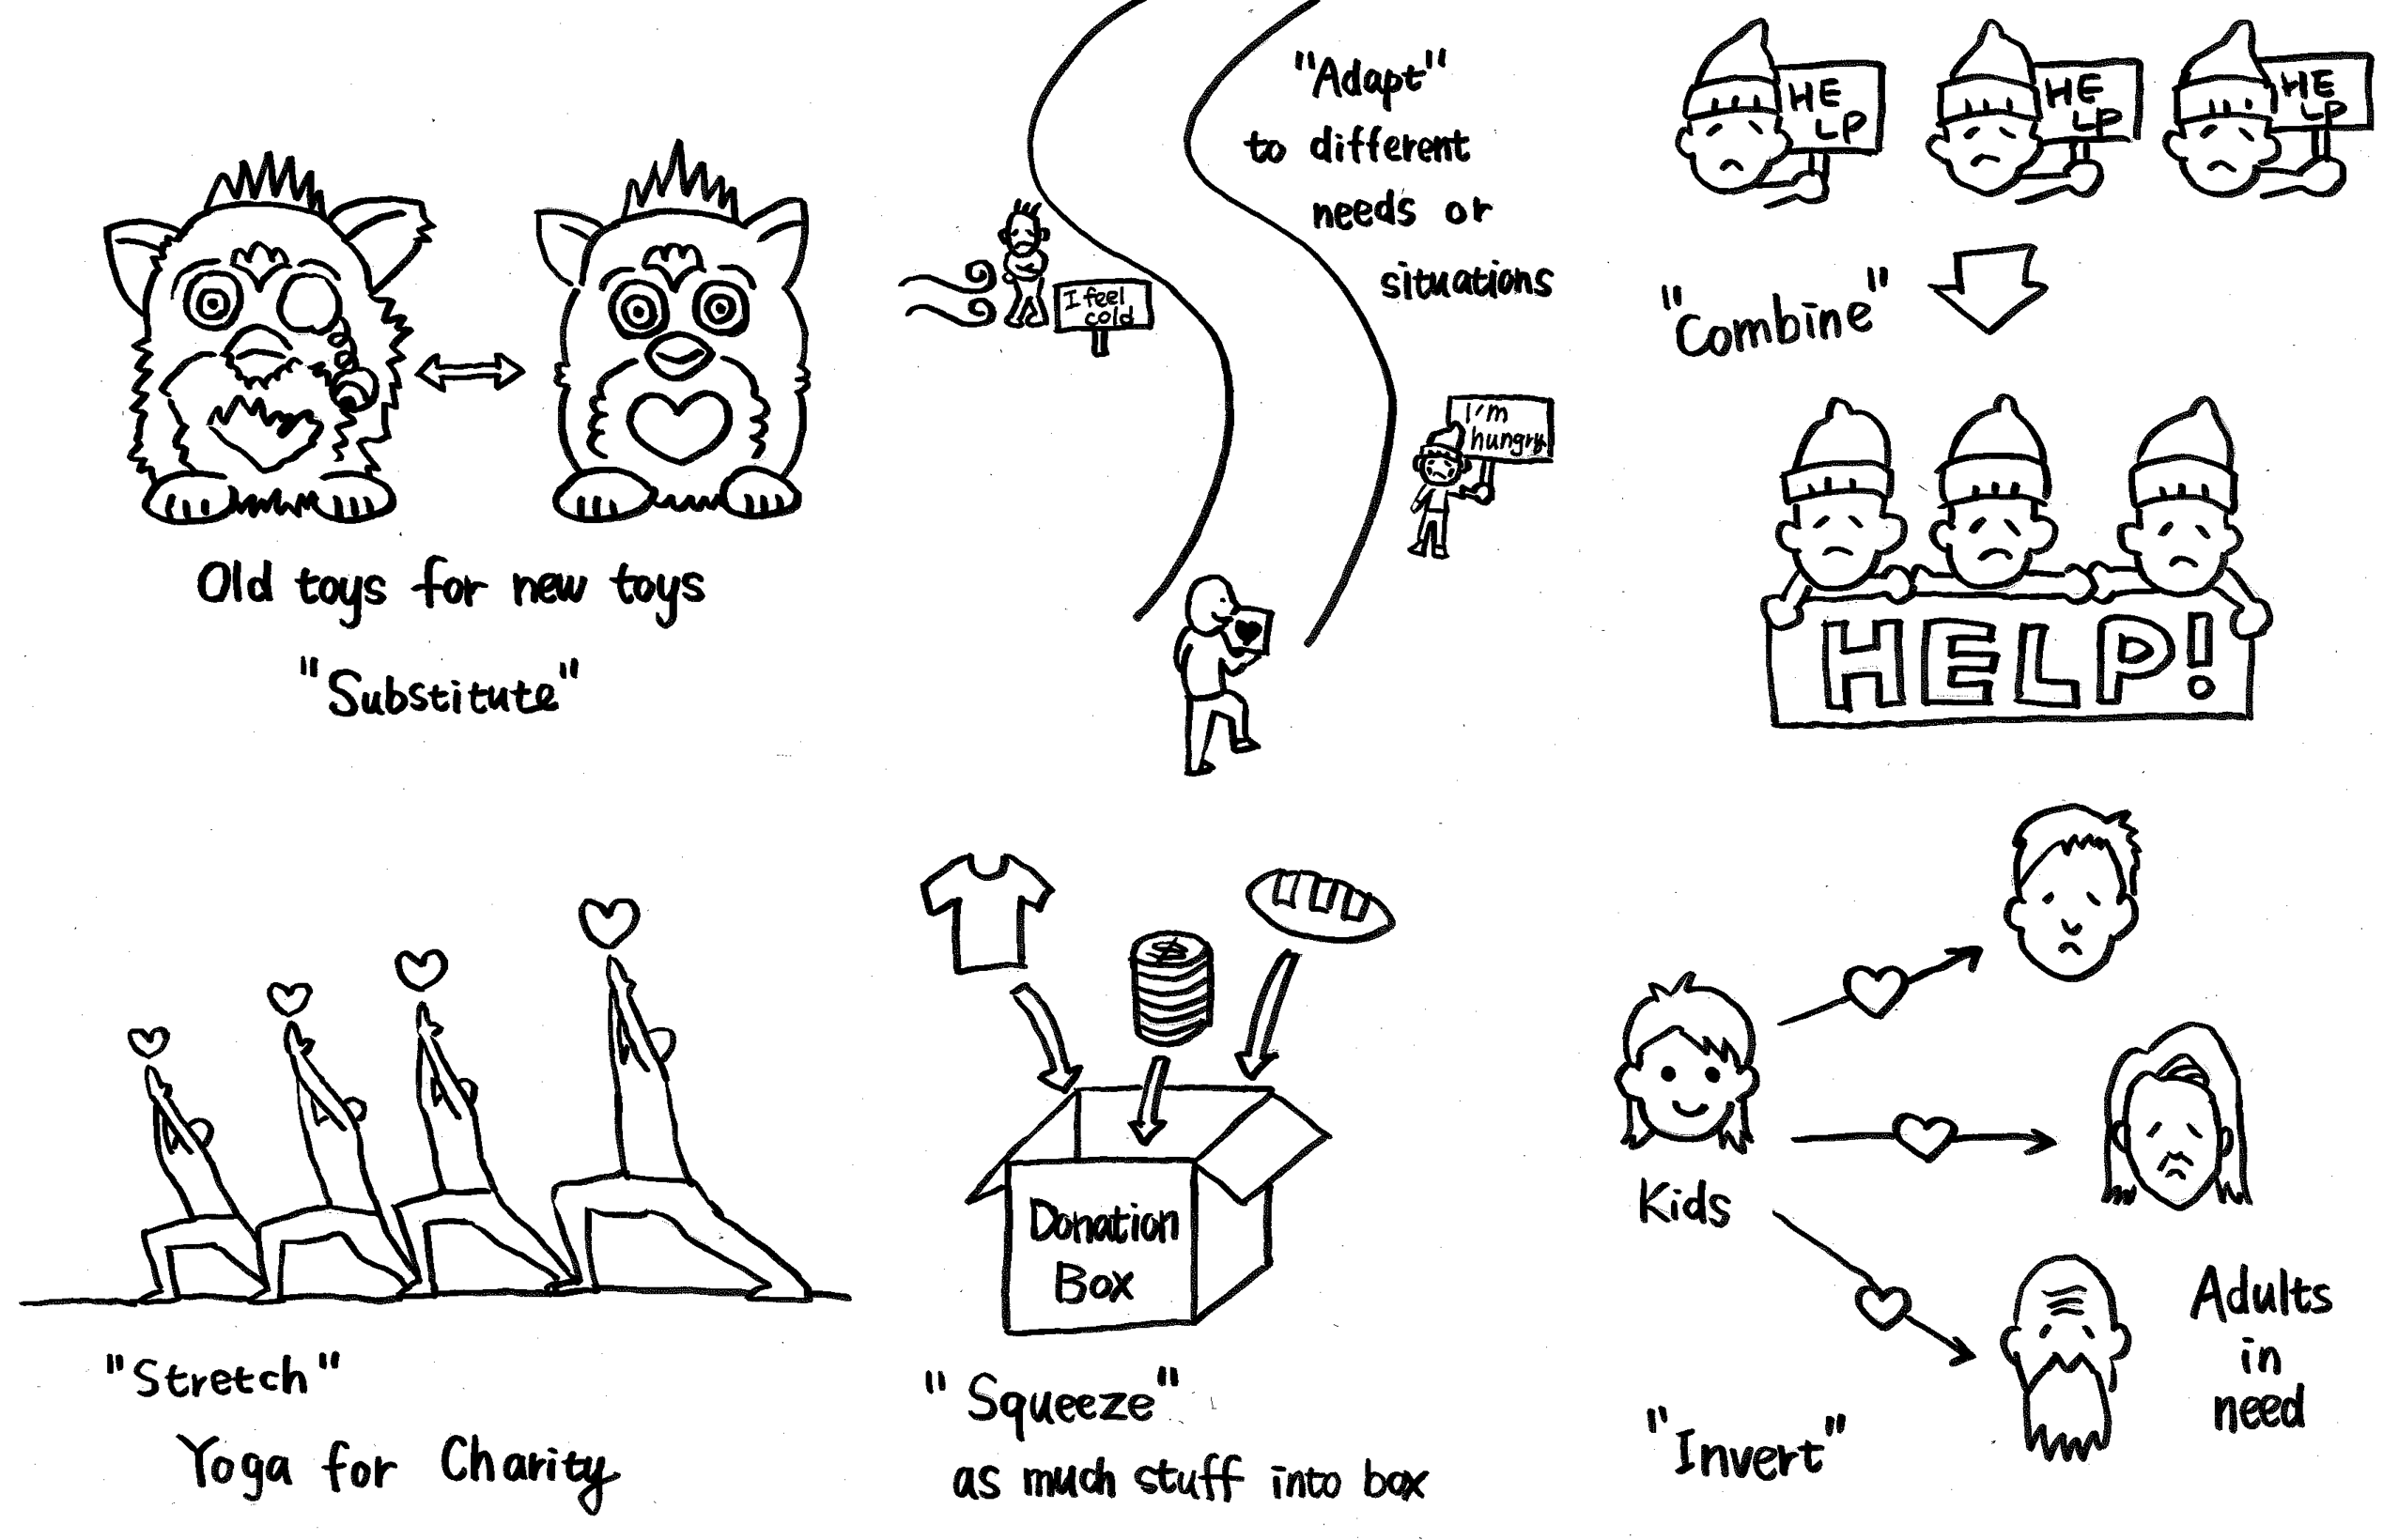 Old toys for new toys
"Substitute"
"Adapt"
to different
needs or
situations
I feel
cold
I'm
hungry
HE
LP
HE
LP
HE
LP
"Combine"
HELP!
"Stretch"
Yoga for Charity
$
Donation
Box
"Squeeze"
as much stuff into box
Kids
Adults
in
need
"Invert"